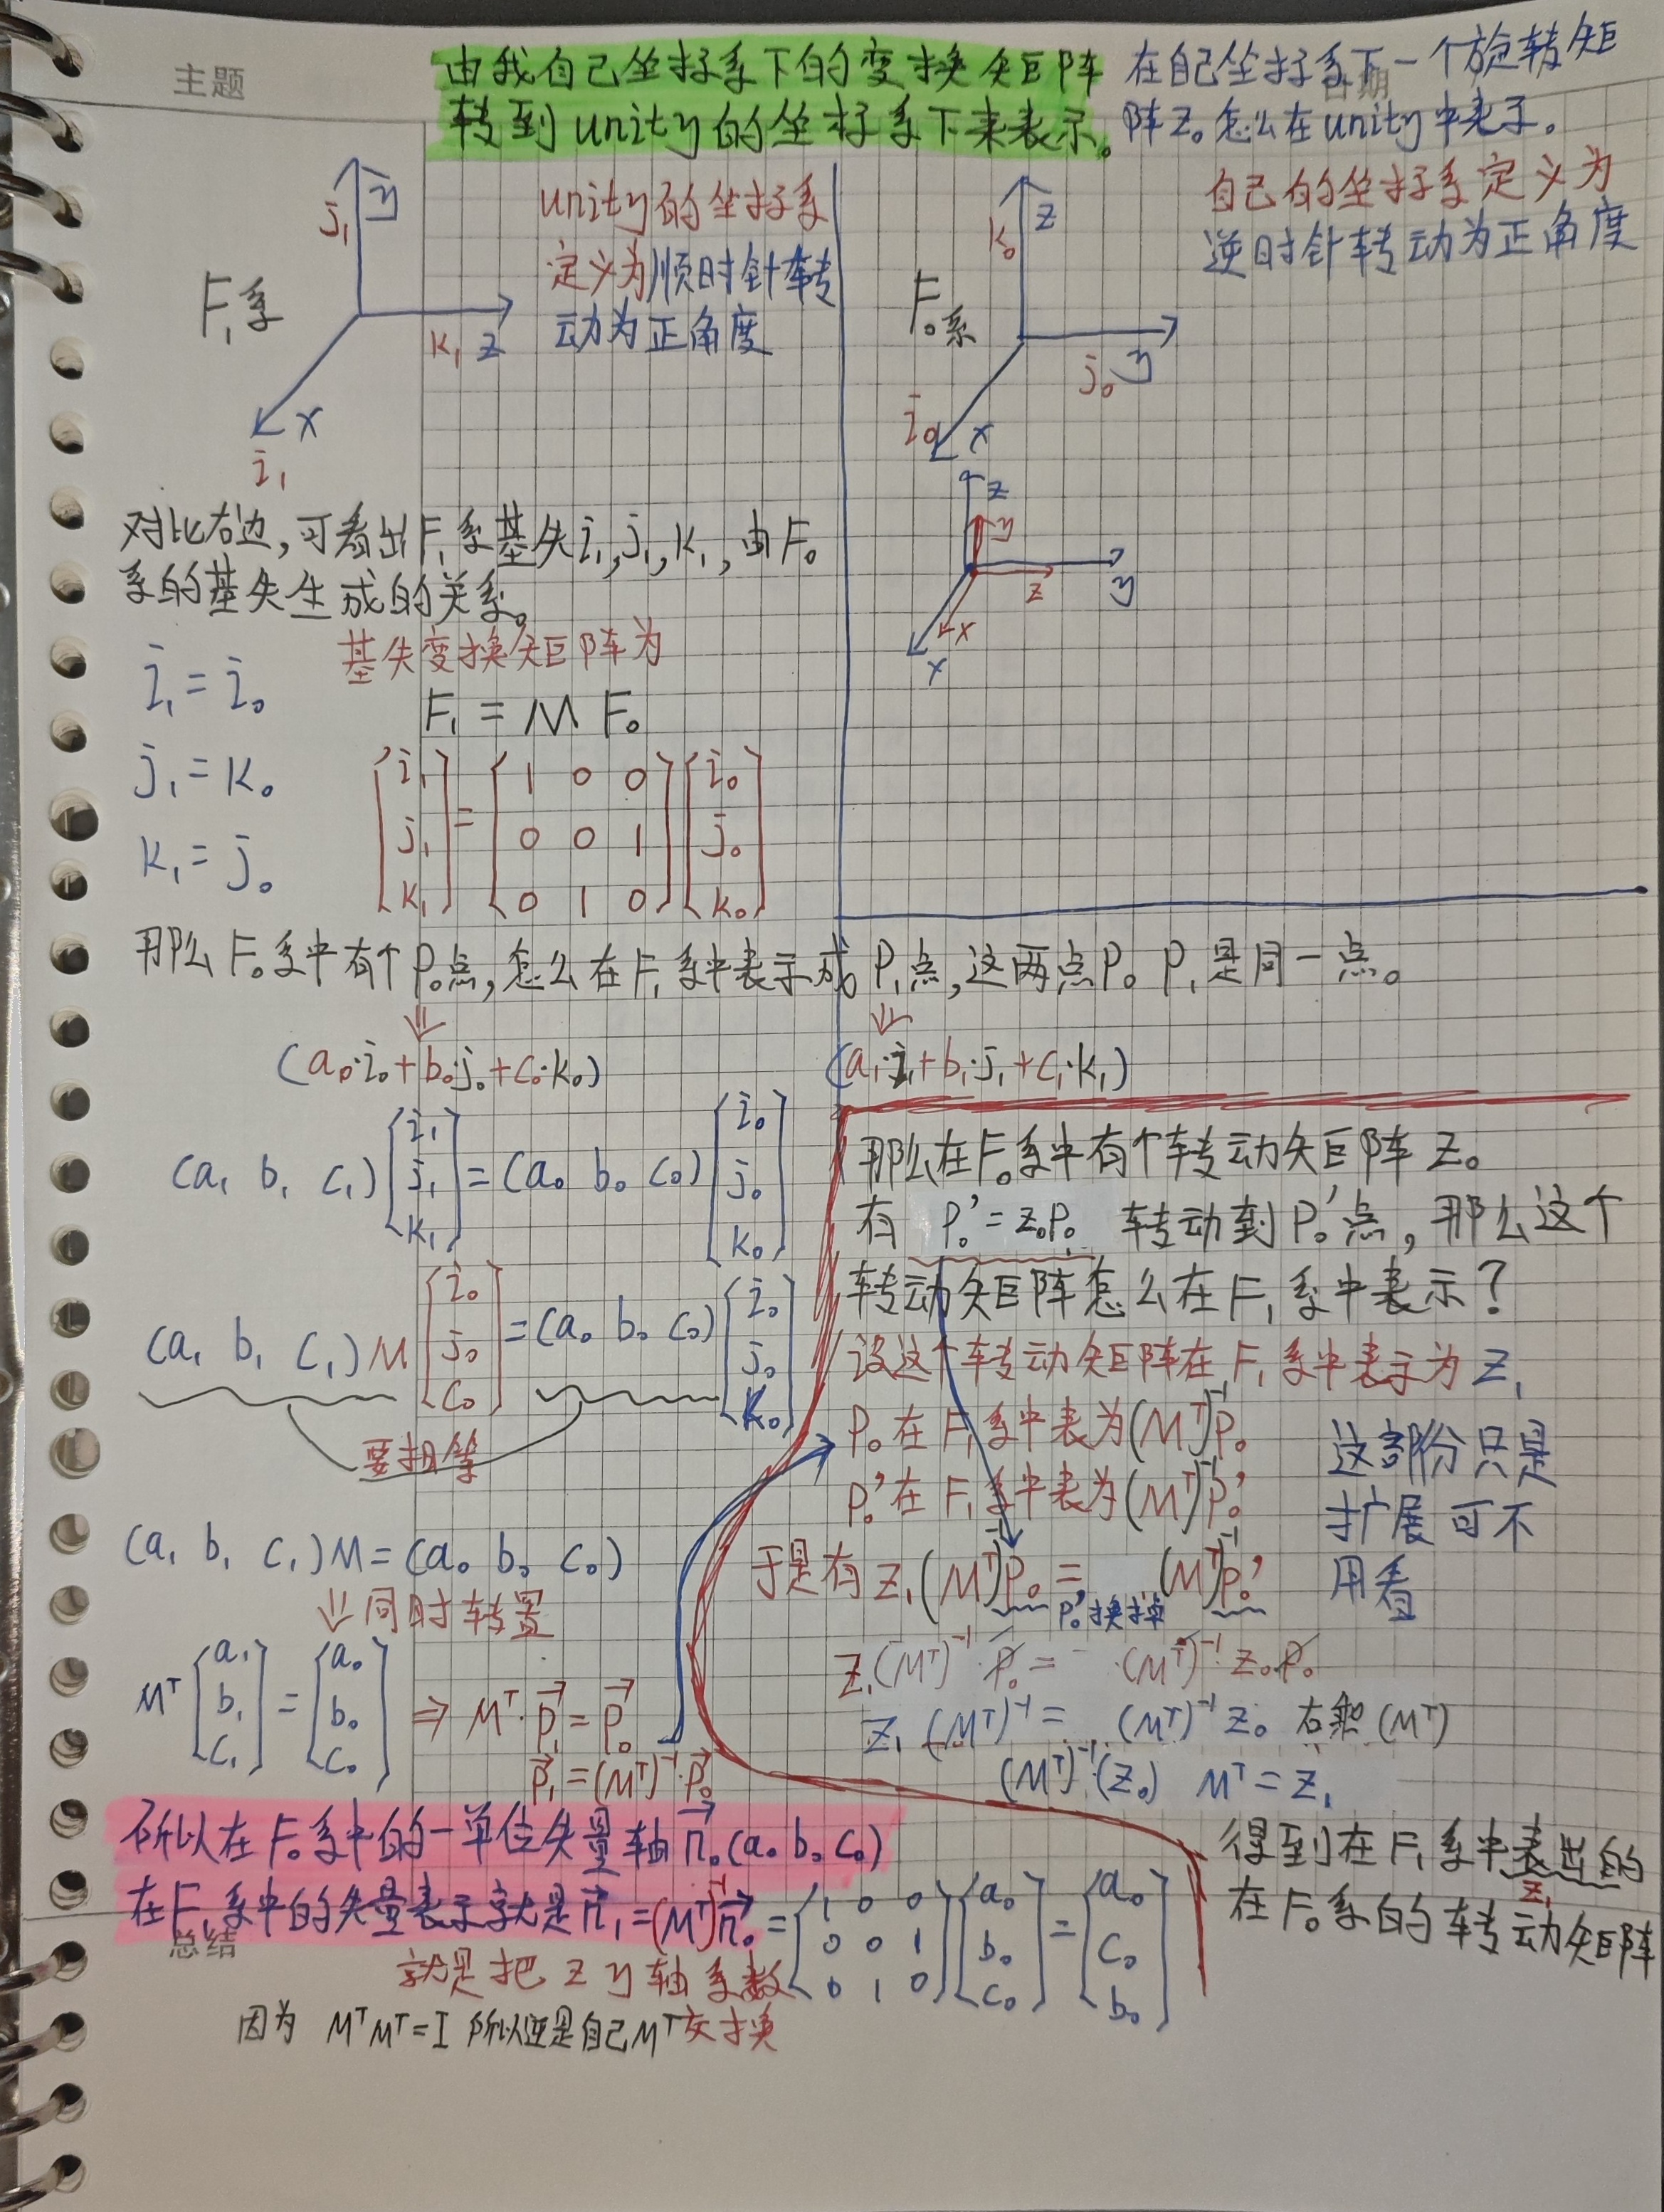 主题
日期
由我自己坐标系下的变换矩阵
转到unity的坐标系下来表示。
在自己坐标系下一个旋转矩
阵Z₀怎么在unity中表示。
j₁ y
F₁系
k₁ z
x
i₁
unity的坐标系
定义为顺时针转
动为正角度
k₀ z
F₀系
j₀ y
i₀ x
自己的坐标系定义为
逆时针转动为正角度
z
y
y
z
x
x
对比右边,可看出F₁系基矢i₁,j₁,k₁,由F₀
系的基矢生成的关系。
i₁=i₀
j₁=k₀
k₁=j₀
基矢变换矩阵为
F₁=M F₀
[i₁] [1 0 0] [i₀]
[j₁] = [0 0 1] [j₀]
[k₁] [0 1 0] [k₀]
那么F₀系中有个P₀点,怎么在F₁系中表示成P₁点,这两点P₀ P₁是同一点。
⇓ ⇓
(a₀·i₀+b₀·j₀+c₀·k₀) (a₁·i₁+b₁·j₁+c₁·k₁)
(a₁ b₁ c₁) [i₁ j₁ k₁] = (a₀ b₀ c₀) [i₀ j₀ k₀]
(a₁ b₁ c₁) M [i₀ j₀ c₀] = (a₀ b₀ c₀) [i₀ j₀ k₀]
要相等
(a₁ b₁ c₁)M=(a₀ b₀ c₀)
⇓同时转置
Mᵀ [a₁ b₁ c₁] = [a₀ b₀ c₀] ⇒ Mᵀ·P₁=P₀
P₁=(Mᵀ)⁻¹·P₀
那么在F₀系中有个转动矩阵Z₀
有 P₀'=Z₀P₀ 转动到P₀'点,那么这个
转动矩阵怎么在F₁系中表示?
设这个转动矩阵在F₁系中表示为Z₁
P₀在F₁系中表为(Mᵀ)⁻¹P₀
P₀'在F₁系中表为(Mᵀ)⁻¹P₀'
这部份只是
扩展可不
用看
于是有Z₁(Mᵀ)⁻¹P₀ = (Mᵀ)⁻¹P₀'
P₀'换掉
Z₁(Mᵀ)⁻¹P₀ = (Mᵀ)⁻¹Z₀P₀
Z₁(Mᵀ)⁻¹ = (Mᵀ)⁻¹Z₀ 右乘(Mᵀ)
(Mᵀ)⁻¹(Z₀) Mᵀ=Z₁
得到在F₁系中表出的
Z₁
在F₀系的转动矩阵
所以在F₀系中的一单位矢量轴n₀(a₀ b₀ c₀)
在F₁系中的矢量表示就是n₁=(Mᵀ)⁻¹n₀ = [1 0 0; 0 0 1; 0 1 0] [a₀ b₀ c₀] = [a₀ c₀ b₀]
总结
就是把z y轴系数
因为 MᵀMᵀ=I 所以逆是自己Mᵀ交换